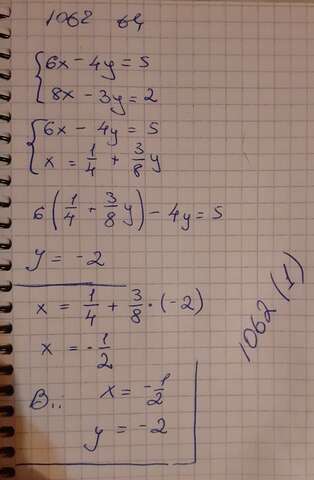 1062 бц
{ 6x - 4y = 5
8x - 3y = 2
{ 6x - 4y = 5
x = 1/4 + 3/8 y
6 ( 1/4 + 3/8 y ) - 4y = 5
y = -2
x = 1/4 + 3/8 · (-2)
x = - 1/2
В.: x = - 1/2
y = -2
1062 (1)